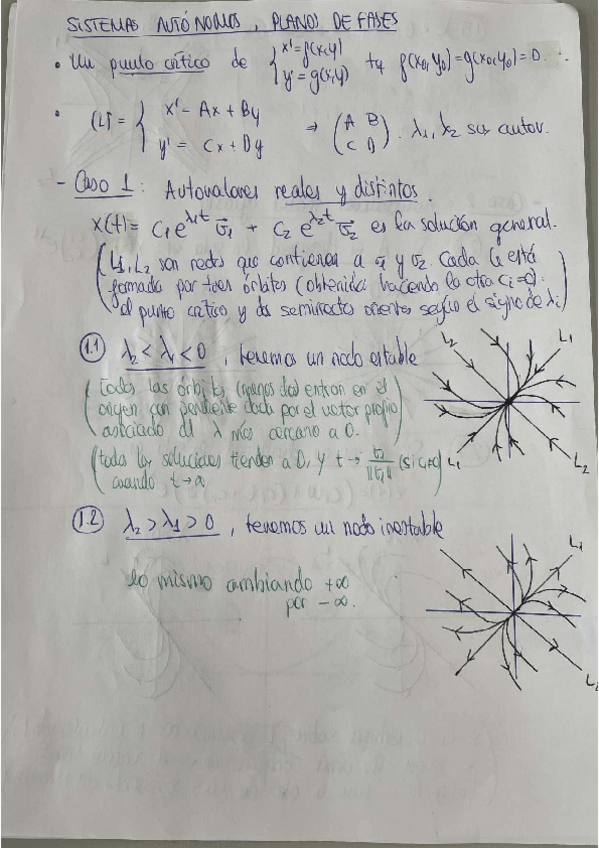 SISTEMAS AUTÓNOMOS, PLANOS DE FASES
• Un punto crítico de { x' = f(x,y) y' = g(x,y) tq f(x0,y0)=g(x0,y0)=0.
• (L) = { x' = Ax + By y' = Cx + Dy ⇒ (A B C D). λ1, λ2 sus autov.
- Caso 1: Autovalores reales y distintos.
X(t) = C1 e^λ1t v1 + C2 e^λ2t v2 es la solución general.
(L1, L2 son rectas que contienen a v1 y v2. Cada Li está
formada por tres órbitas (obtenidas haciendo la otra ci=0):
el punto crítico y dos semirrectas según el signo de λi)
1.1 λ2 < λ1 < 0, tenemos un nodo estable
(todas las órbitas (menos dos) entran en el
origen con pendiente dada por el vector propio
asociado al λ más cercano a 0.
(todas las soluciones tienden a 0, y
cuando t→∞
L2 L1
L1 L2
1.2 λ2 > λ1 > 0, tenemos un nodo inestable
lo mismo cambiando +∞
por -∞.
L1
L2